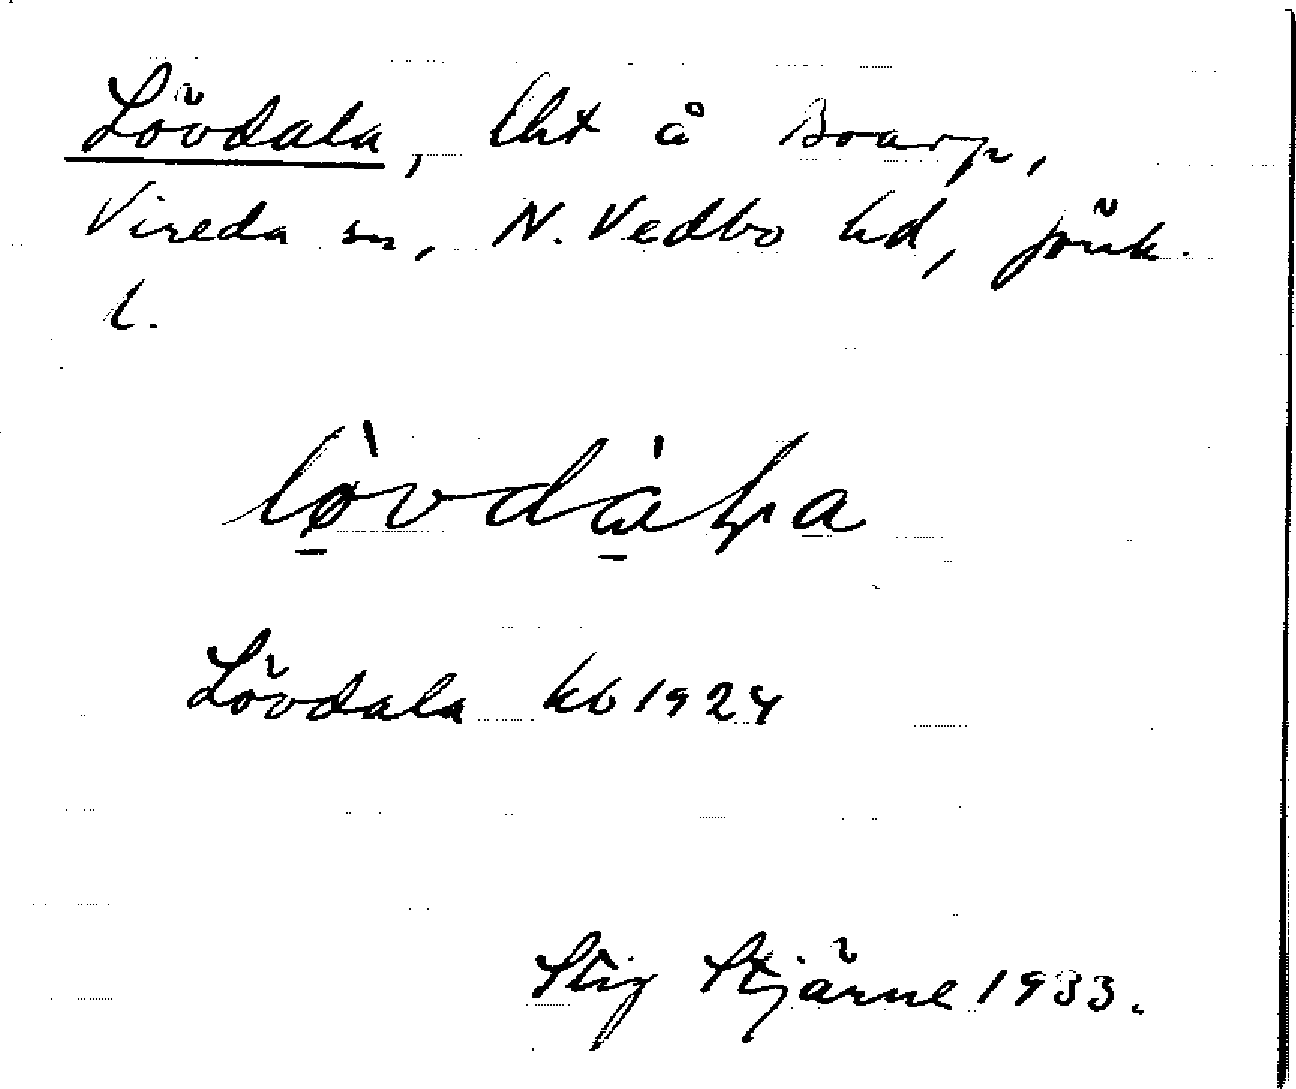 Lövdala, lht å Boarp,
Vireda sn, N. Vedbo hd, Jönk.
l.
Lövdala kb 1924
Stig Stjärne 1933.